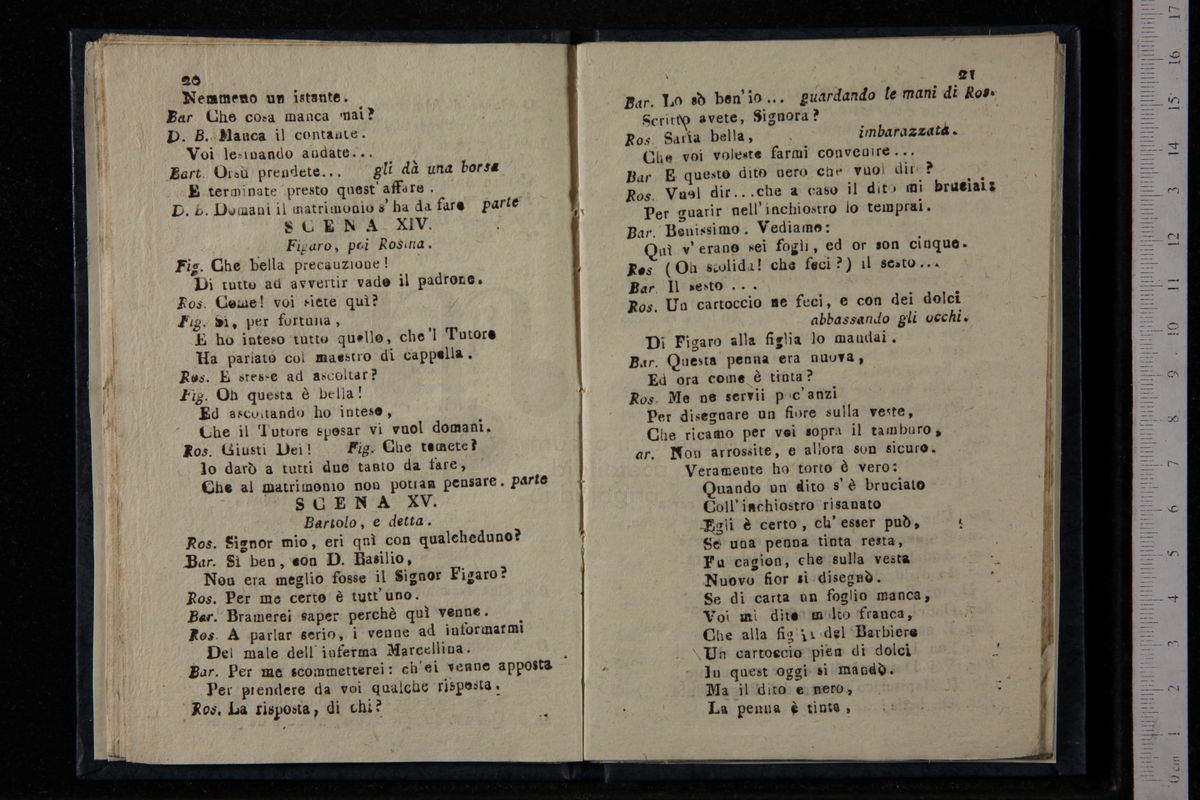 20
Nemmeno un istante.
Bar Che cosa manca mai?
D. B. Manca il contante.
Voi lesinando andate...
Bart. Orsù prendete... gli dà una borsa
E terminate presto quest'affare.
D. B. Domani il matrimonio s'ha da fare parte
SCENA XIV.
Figaro, poi Rosina.
Fig. Che bella precauzione!
Di tutto ad avvertir vado il padrone.
Ros. Come! voi siete quì?
Fig. Sì, per fortuna,
E ho inteso tutto quello, che'l Tutore
Ha parlato col maestro di cappella.
Ros. E steste ad ascoltar?
Fig. Oh questa è bella!
Ed ascoltando ho inteso,
Che il Tutore sposar vi vuol domani.
Ros. Giusti Dei! Fig. Che temete?
Io darò a tutti due tanto da fare,
Che al matrimonio non potran pensare. parte
SCENA XV.
Bartolo, e detta.
Ros. Signor mio, eri quì con qualcheduno?
Bar. Sì ben, con D. Basilio,
Non era meglio fosse il Signor Figaro?
Ros. Per me certo è tutt'uno.
Bar. Bramerei saper perchè quì venne.
Ros. A parlar serio, i venne ad informarmi
Del male dell'inferma Marcellina.
Bar. Per me scommetterei: ch'ei venne apposta
Per prendere da voi qualche risposta.
Ros. La risposta, di chi?
21
Bar. Lo sò ben'io... guardando le mani di Ros.
Scritto avete, Signora?
Ros. Saria bella, imbarazzata.
Che voi voleste farmi convenire...
Bar E questo dito nero che vuol dire?
Ros. Vuol dir...che a caso il dito mi bruciai:
Per guarir nell'inchiostro lo temprai.
Bar. Benissimo. Vediamo:
Quì v'erano sei fogli, ed or son cinque.
Ros (Oh stolida! che feci?) il sesto...
Bar Il sesto...
Ros. Un cartoccio ne feci, e con dei dolci
abbassando gli occhi.
Di Figaro alla figlia lo mandai.
Bar. Questa penna era nuova,
Ed ora come è tinta?
Ros. Me ne servii poc'anzi
Per disegnare un fiore sulla veste,
Che ricamo per voi sopra il tamburo,
ar. Non arrossite, e allora son sicuro.
Veramente ho torto è vero:
Quando un dito s'è bruciato
Coll'inchiostro risanato
Egli è certo, ch'esser può,
Se una penna tinta resta,
Fu cagion, che sulla vesta
Nuovo fior si disegnò.
Se di carta un foglio manca,
Voi mi dite molto franca,
Che alla figlia del Barbiere
Un cartoccio pien di dolci
In quest oggi si mandò.
Ma il dito e nero,
La penna è tinta,